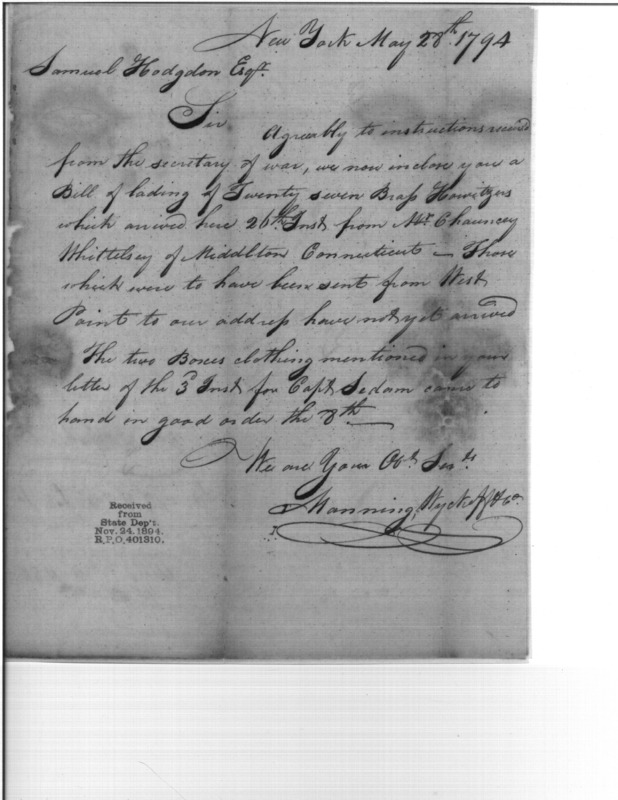 New York May 28th. 1794
Samuel Hodgdon Esqr.
Sir
Agreably to instructions received
from the secretary of war, we now inclose you a
Bill of lading of Twenty seven Brass Howitzers
which arrived here 26th Inst from Mr. Chauncey
Whittelsey of Middlton Connecticut — Those
which were to have been sent from West
Point to our address have not yet arrived
The two Boxes clothing mentioned in your
letter of the 3d Inst for Capt Sedam came to
hand in good order the 8th —
We are Your Obt. Servts
Manning Wyckoff & Co.
Received
from
State Dep't.
Nov. 24. 1894.
R.P.O. 401310.